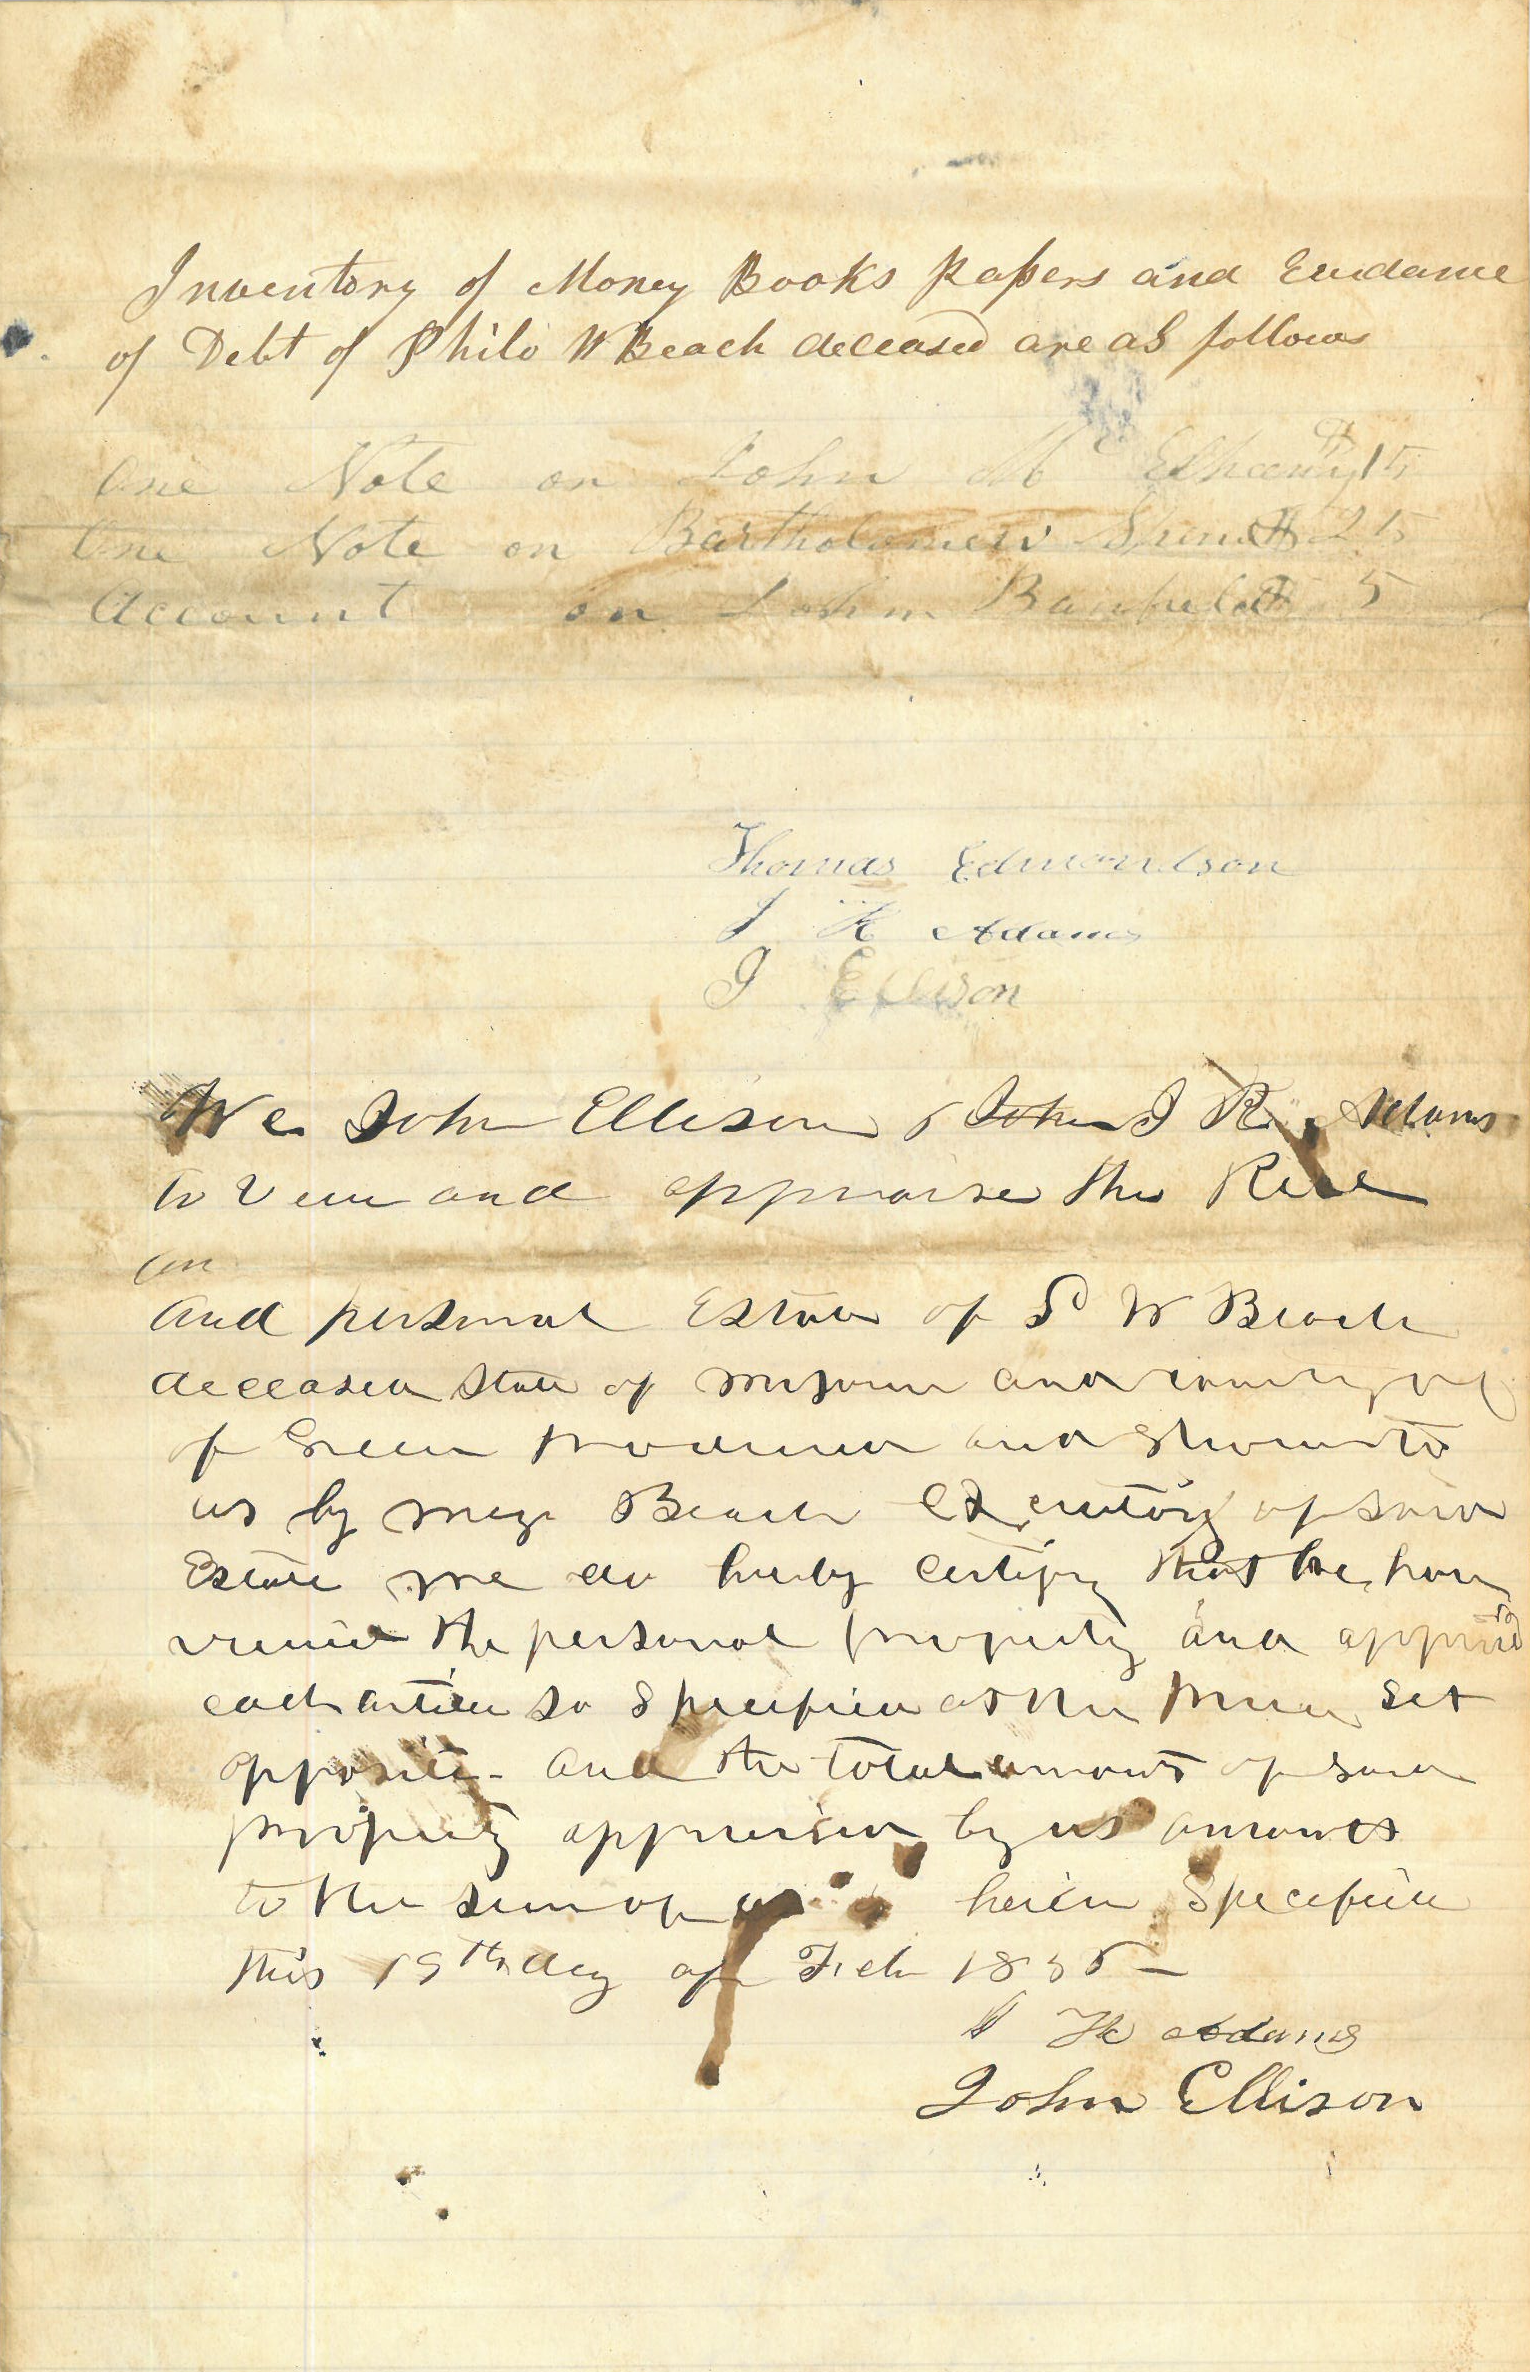 Inventory of Money Books Papers and Evidance
of Debt of Philo W Beach deceased are as follows
One Note on John Mc Elhaany $ 15
One Note on Bartholomew $ 215
Account on John $ 5
Thomas Edmondson
J K Adams
J Ellison
We John Ellison & John J R Adams
to View and appraise the Reale
on
and personal Estate of P W Beach
deceased State of missouri and county of
of Green produced and Shown to
us by Beach Executory of said
Estate we do hereby certify that we have
viewed the personal property and appraised
each article so Specified at the price set
opposite - and the total amount of said
property appraised by us amounts
to the sum of as herein Specified
this 19th day of Feb 1885
J K Adams
John Ellison